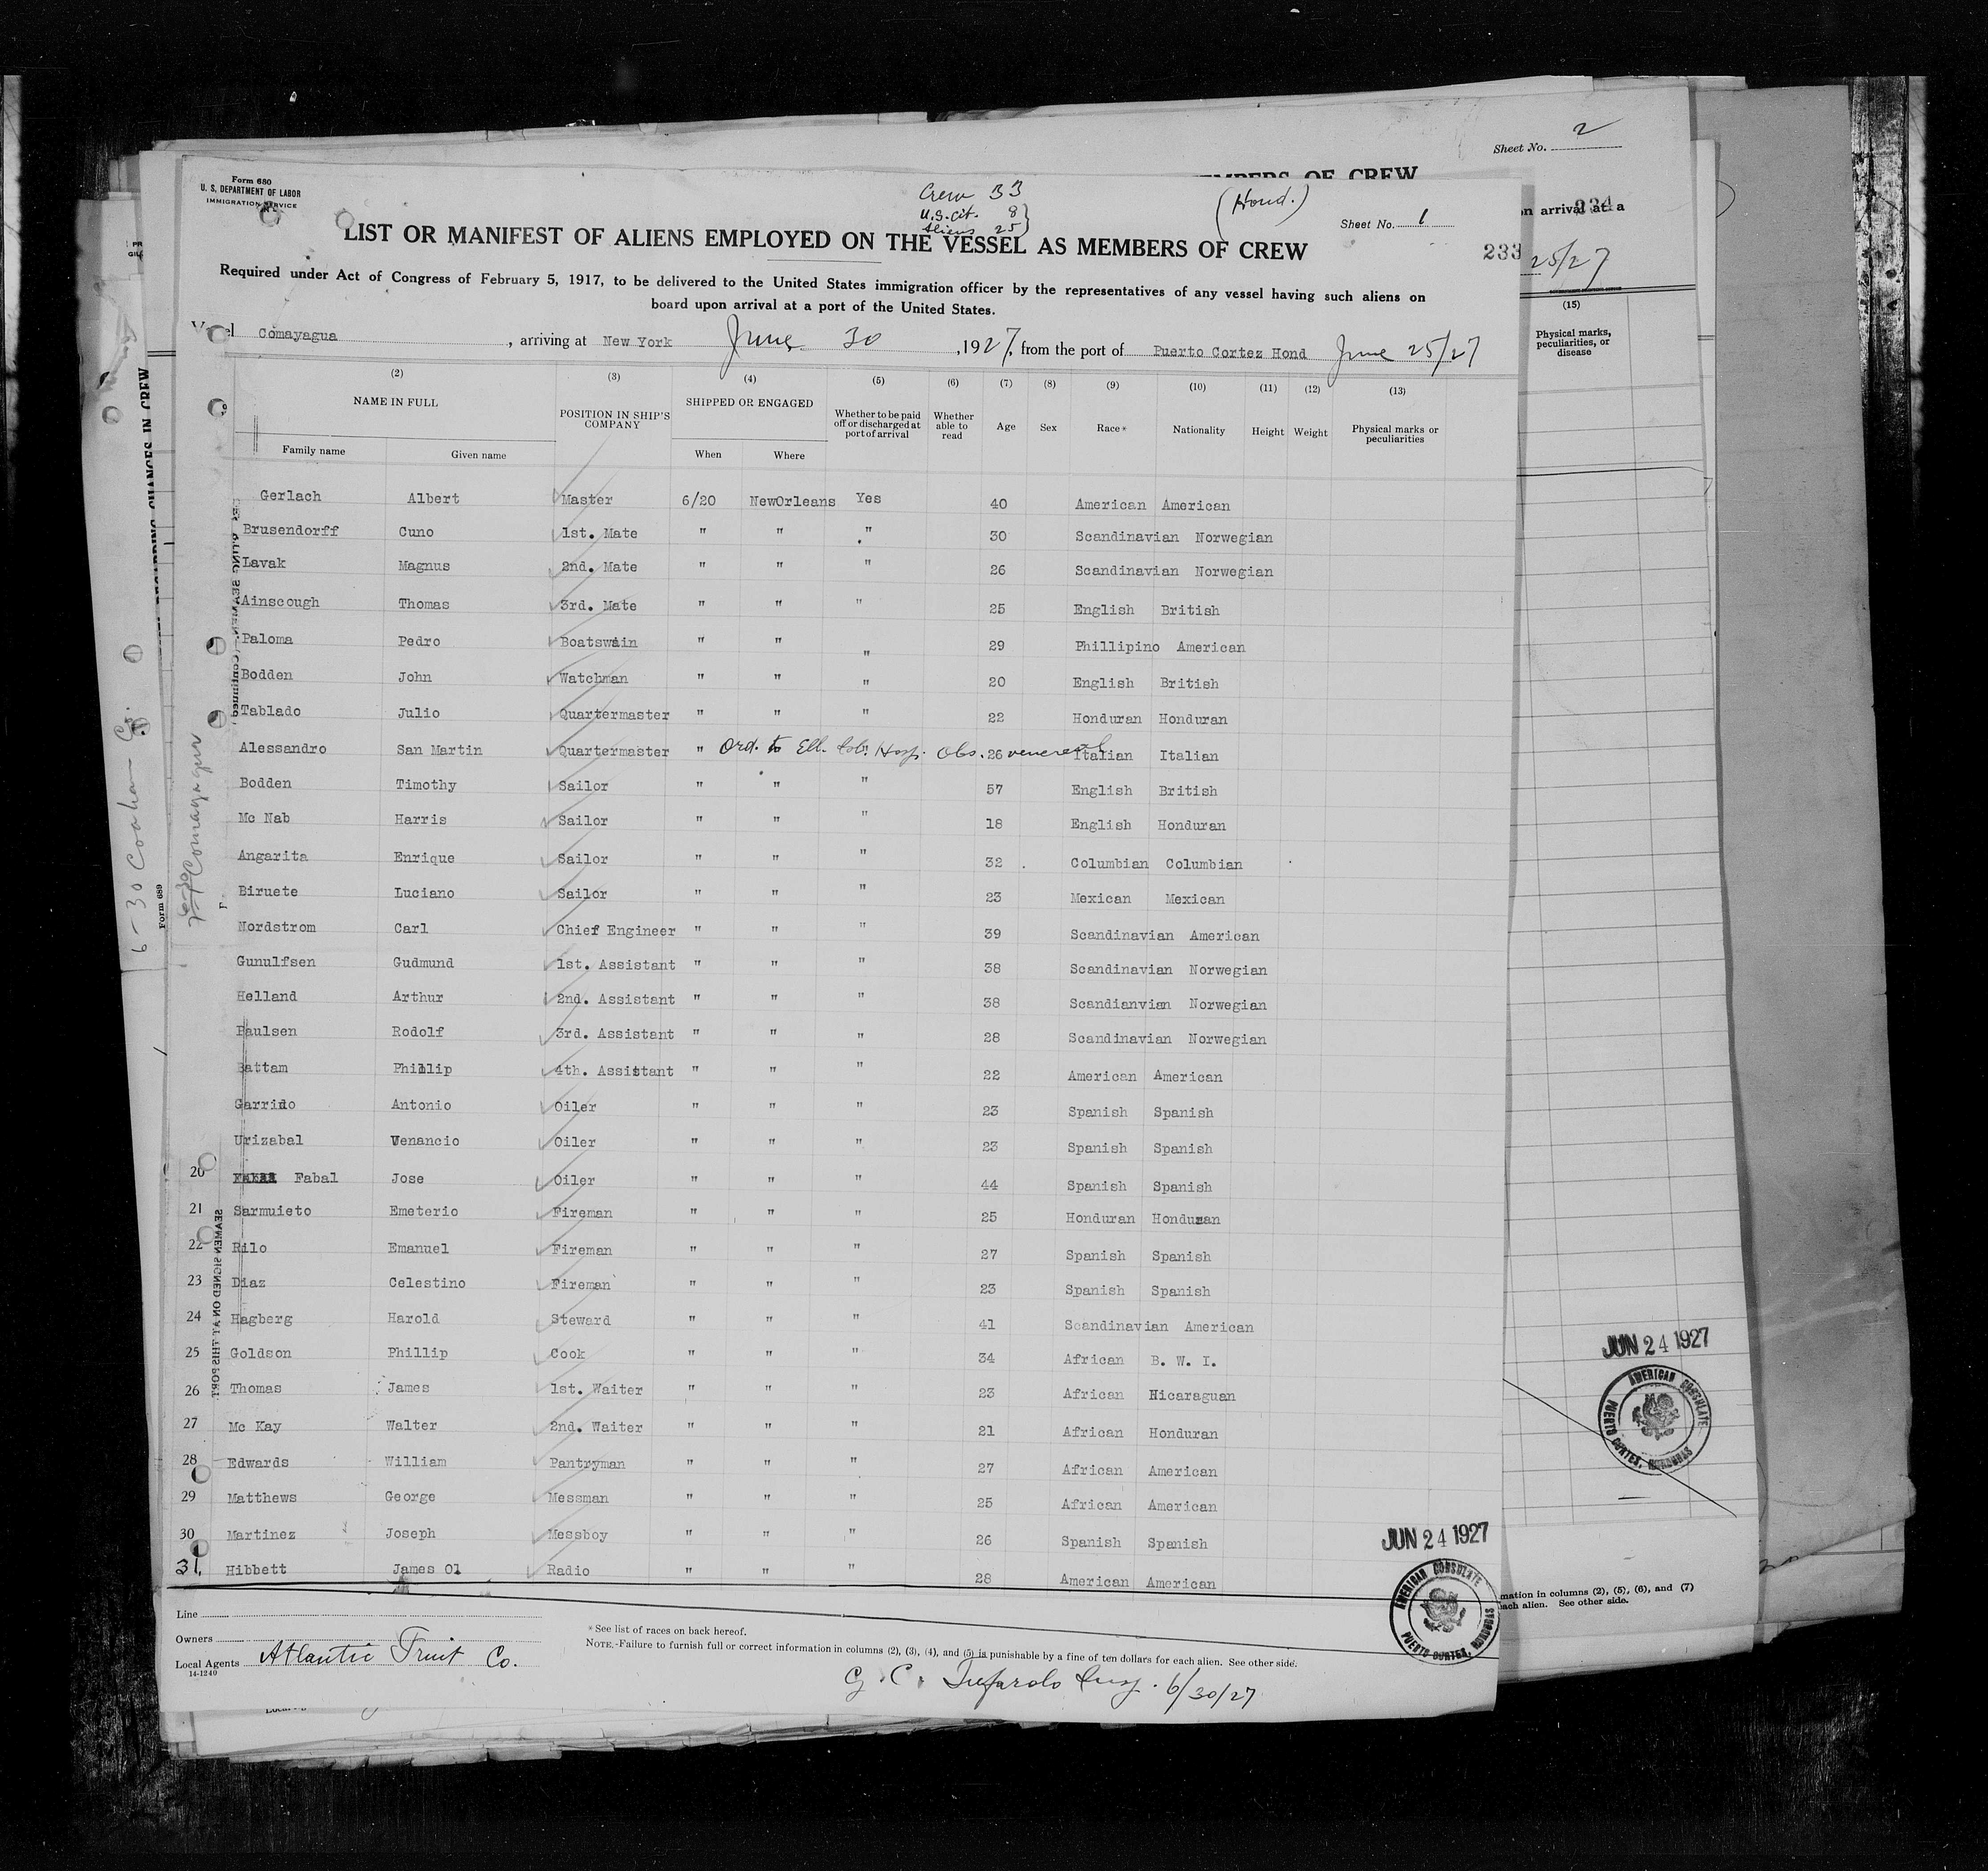 Sheet No. 2
MEMBERS OF CREW
on arrival at a
234
25/27
(15)
Physical marks,
peculiarities, or
disease
Form 680
U. S. DEPARTMENT OF LABOR
IMMIGRATION SERVICE
Crew 33
U.S. Cit. 8
Aliens 25
(Hond.)
Sheet No. 1
233
LIST OR MANIFEST OF ALIENS EMPLOYED ON THE VESSEL AS MEMBERS OF CREW
Required under Act of Congress of February 5, 1917, to be delivered to the United States immigration officer by the representatives of any vessel having such aliens on
board upon arrival at a port of the United States.
Vessel Comayagua, arriving at New York June 30, 1927, from the port of Puerto Cortez Hond June 25/27
(2) (3) (4) (5) (6) (7) (8) (9) (10) (11) (12) (13)
NAME IN FULL POSITION IN SHIP'S COMPANY SHIPPED OR ENGAGED Whether to be paid off or discharged at port of arrival Whether able to read Age Sex Race* Nationality Height Weight Physical marks or peculiarities
Family name Given name When Where
Gerlach Albert Master 6/20 NewOrleans Yes 40 American American
Brusendorff Cuno 1st. Mate " " " 30 Scandinavian Norwegian
Lavak Magnus 2nd. Mate " " " 26 Scandinavian Norwegian
Ainscough Thomas 3rd. Mate " " " 25 English British
Paloma Pedro Boatswain " " " 29 Phillipino American
Bodden John Watchman " " " 20 English British
Tablado Julio Quartermaster " " " 22 Honduran Honduran
Alessandro San Martin Quartermaster " Ord. to Ell. Isl. Hosp. Obs. venereal 26 Italian Italian
Bodden Timothy Sailor " " " 57 English British
Mc Nab Harris Sailor " " " 18 English Honduran
Angarita Enrique Sailor " " " 32 Columbian Columbian
Biruete Luciano Sailor " " " 23 Mexican Mexican
Nordstrom Carl Chief Engineer " " " 39 Scandinavian American
Gunulfsen Gudmund 1st. Assistant " " " 38 Scandinavian Norwegian
Helland Arthur 2nd. Assistant " " " 38 Scandianvian Norwegian
Paulsen Rodolf 3rd. Assistant " " " 28 Scandinavian Norwegian
Battam Phillip 4th. Assistant " " " 22 American American
Garrido Antonio Oiler " " " 23 Spanish Spanish
Urizabal Venancio Oiler " " " 23 Spanish Spanish
20 Fabal Jose Oiler " " " 44 Spanish Spanish
21 Sarmuieto Emeterio Fireman " " " 25 Honduran Honduran
22 Rilo Emanuel Fireman " " " 27 Spanish Spanish
23 Diaz Celestino Fireman " " " 23 Spanish Spanish
24 Hagberg Harold Steward " " " 41 Scandinavian American
25 Goldson Phillip Cook " " " 34 African B. W. I.
26 Thomas James 1st. Waiter " " " 23 African Nicaraguan
27 Mc Kay Walter 2nd. Waiter " " " 21 African Honduran
28 Edwards William Pantryman " " " 27 African American
29 Matthews George Messman " " " 25 African American
30 Martinez Joseph Messboy " " " 26 Spanish Spanish
31. Hibbett James Ol Radio " " " 28 American American
JUN 24 1927
AMERICAN CONSULATE
PUERTO CORTES, HONDURAS
JUN 24 1927
AMERICAN CONSULATE
PUERTO CORTES, HONDURAS
Line
Owners
Local Agents Atlantic Fruit Co.
14-1240
* See list of races on back hereof.
NOTE.-Failure to furnish full or correct information in columns (2), (3), (4), and (5) is punishable by a fine of ten dollars for each alien. See other side.
6/30/27
mation in columns (2), (5), (6), and (7)
each alien. See other side.
CHANGES IN CREW
Form 689
6-30
Comayagua
SEAMEN SIGNED ON AT THIS PORT.